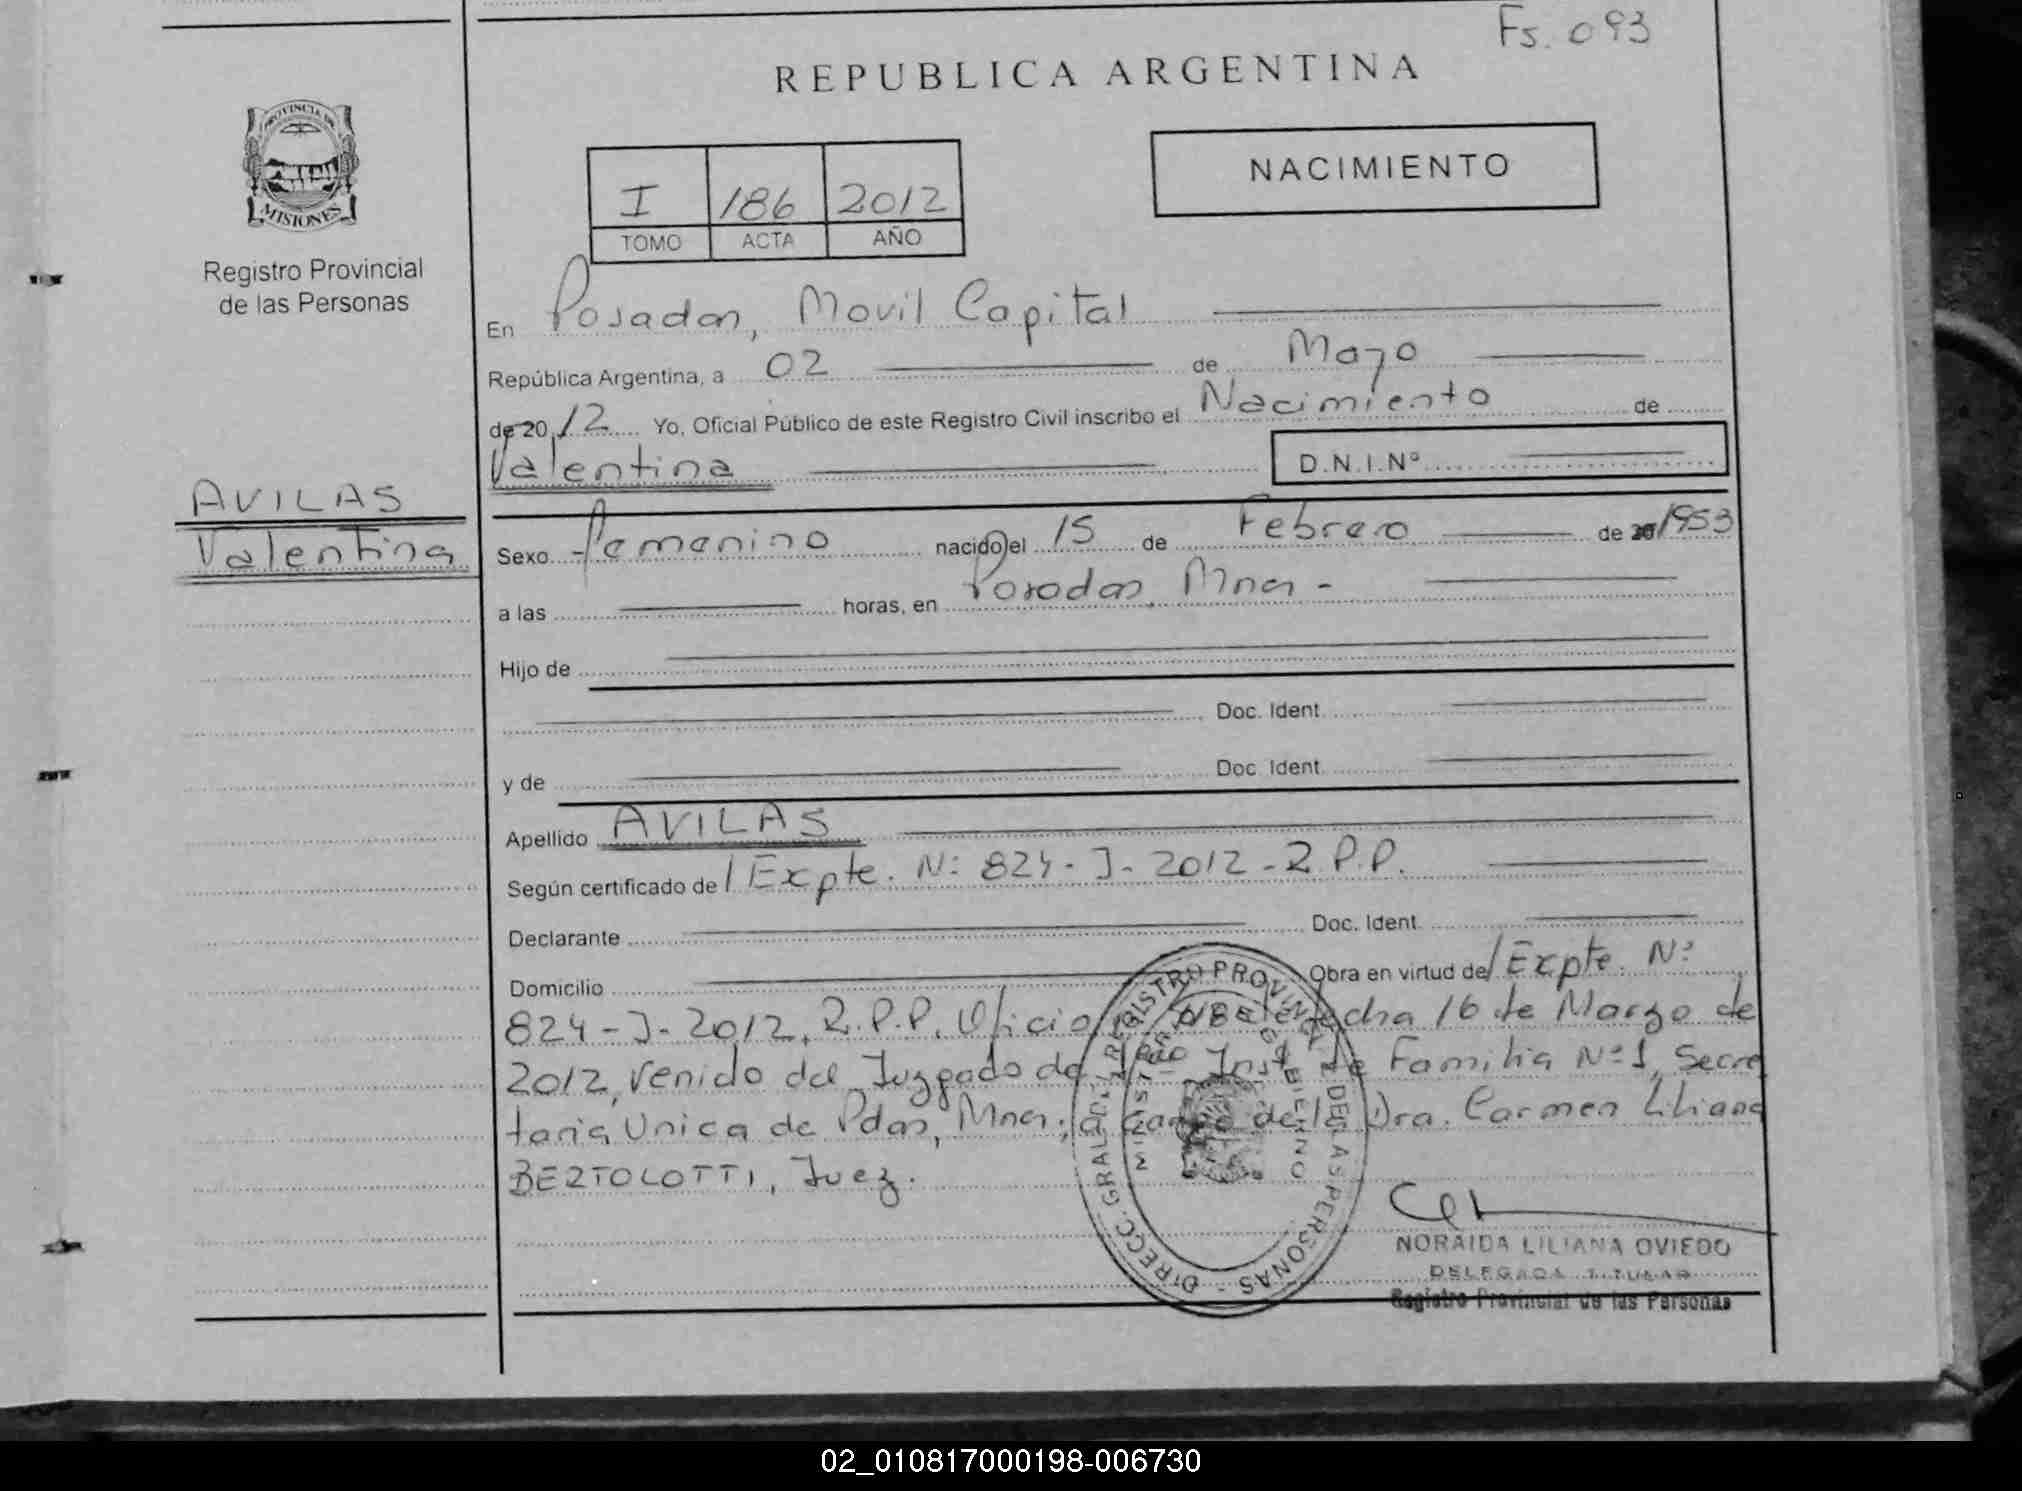 Fs. 093
REPUBLICA ARGENTINA
PROVINCIA DE
MISIONES
Registro Provincial
de las Personas
NACIMIENTO
I 186 2012
TOMO ACTA AÑO
En Posadas, Movil Capital
República Argentina, a 02 de Mayo
de 2012 Yo, Oficial Público de este Registro Civil inscribo el Nacimiento de
Valentina D.N.I.Nº
AVILAS
Valentina
Sexo Femenino nacido el 15 de Febrero de 1953
a las horas, en Posadas, Mnes -
Hijo de
Doc. Ident.
y de Doc. Ident.
Apellido AVILAS
Según certificado de / Expte. Nº 824-J-2012-R.P.P.
Declarante Doc. Ident.
Domicilio Obra en virtud de / Expte. Nº
824-J-2012, R.P.P. Oficio fecha 16 de Marzo de
2012, venido del Juzgado de Inst. de Familia Nº 1, Secre
taria Unica de Pdas, Mnes; a cargo de la Dra. Carmen Liliana
BERTOLOTTI, Juez.
DIRECC. GRAL. DEL REGISTRO PROVINCIAL DE LAS PERSONAS
MINISTERIO DE GOBIERNO
NORAIDA LILIANA OVIEDO
DELEGADA TITULAR
Registro Provincial de las Personas
02_010817000198-006730